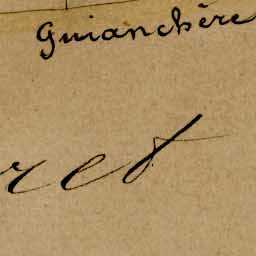 Guianchère
ret